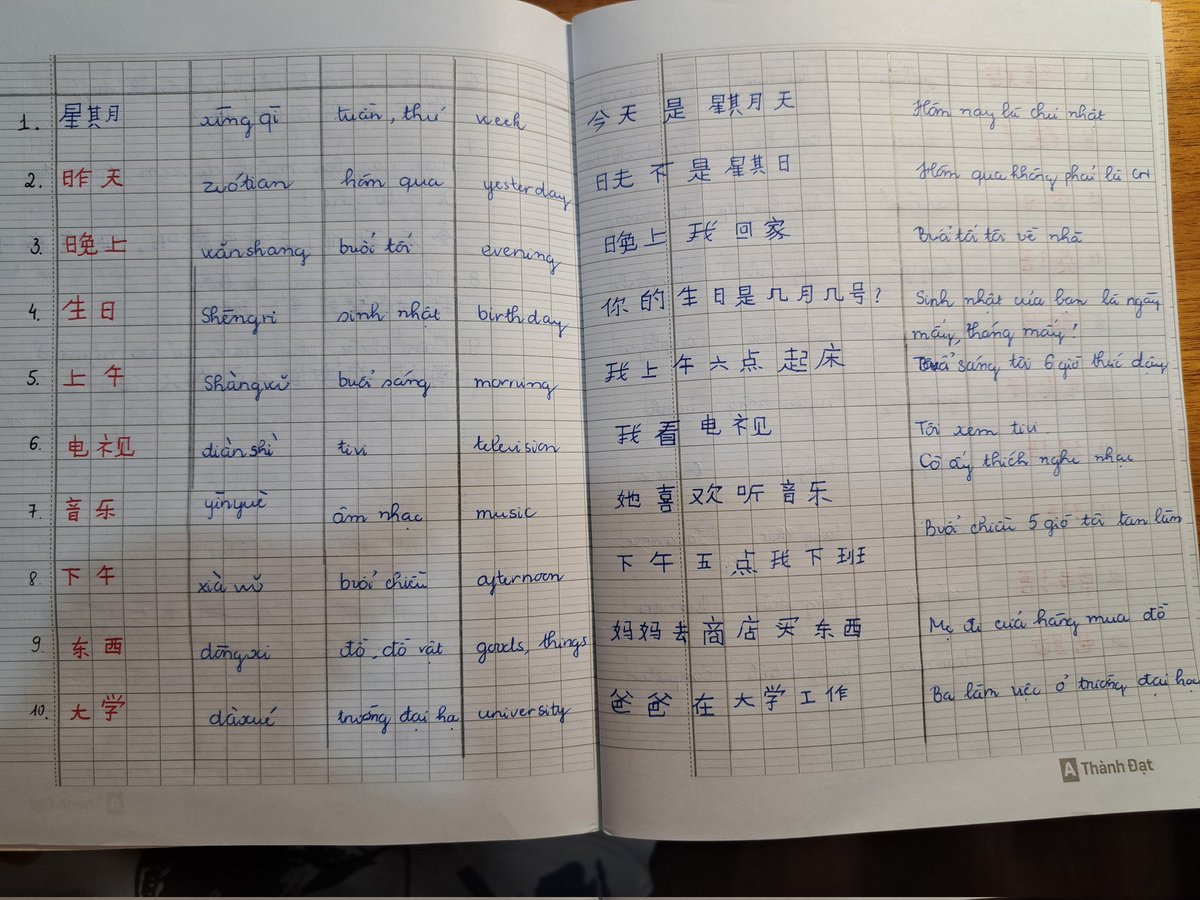 1. 星期 xīng qī tuần, thứ week
2. 昨天 zuótian hôm qua yesterday
3. 晚上 wǎnshang buổi tối evening
4. 生日 Shēngri sinh nhật birthday
5. 上午 Shàngwǔ buổi sáng morrung
6. 电视 diànshì tivi television
7. 音乐 yīnyuè âm nhạc music
8. 下午 xià wǔ buổi chiều afternoon
9. 东西 dōngxi đồ, đồ vật goods, things
10. 大学 dàxué trường đại họ university
今天是星期天 Hôm nay là chủ nhật
不是星期日 Hôm qua không phải là CN
晚上我回家 Buổi tối tôi về nhà
你的生日是几月几号? Sinh nhật của bạn là ngày
mấy, tháng mấy?
我上午六点起床 sáng tôi 6 giờ thức dậy
我看电视 Tôi xem tivi.
Cô ấy thích nghe nhạc
她喜欢听音乐
Buổi chiều 5 giờ tôi tan làm
下午五点我下班
妈妈去商店买东西 Mẹ đi cửa hàng mua đồ
爸爸在大学工作 Ba làm việc ở trường đại học
A Thành Đạt